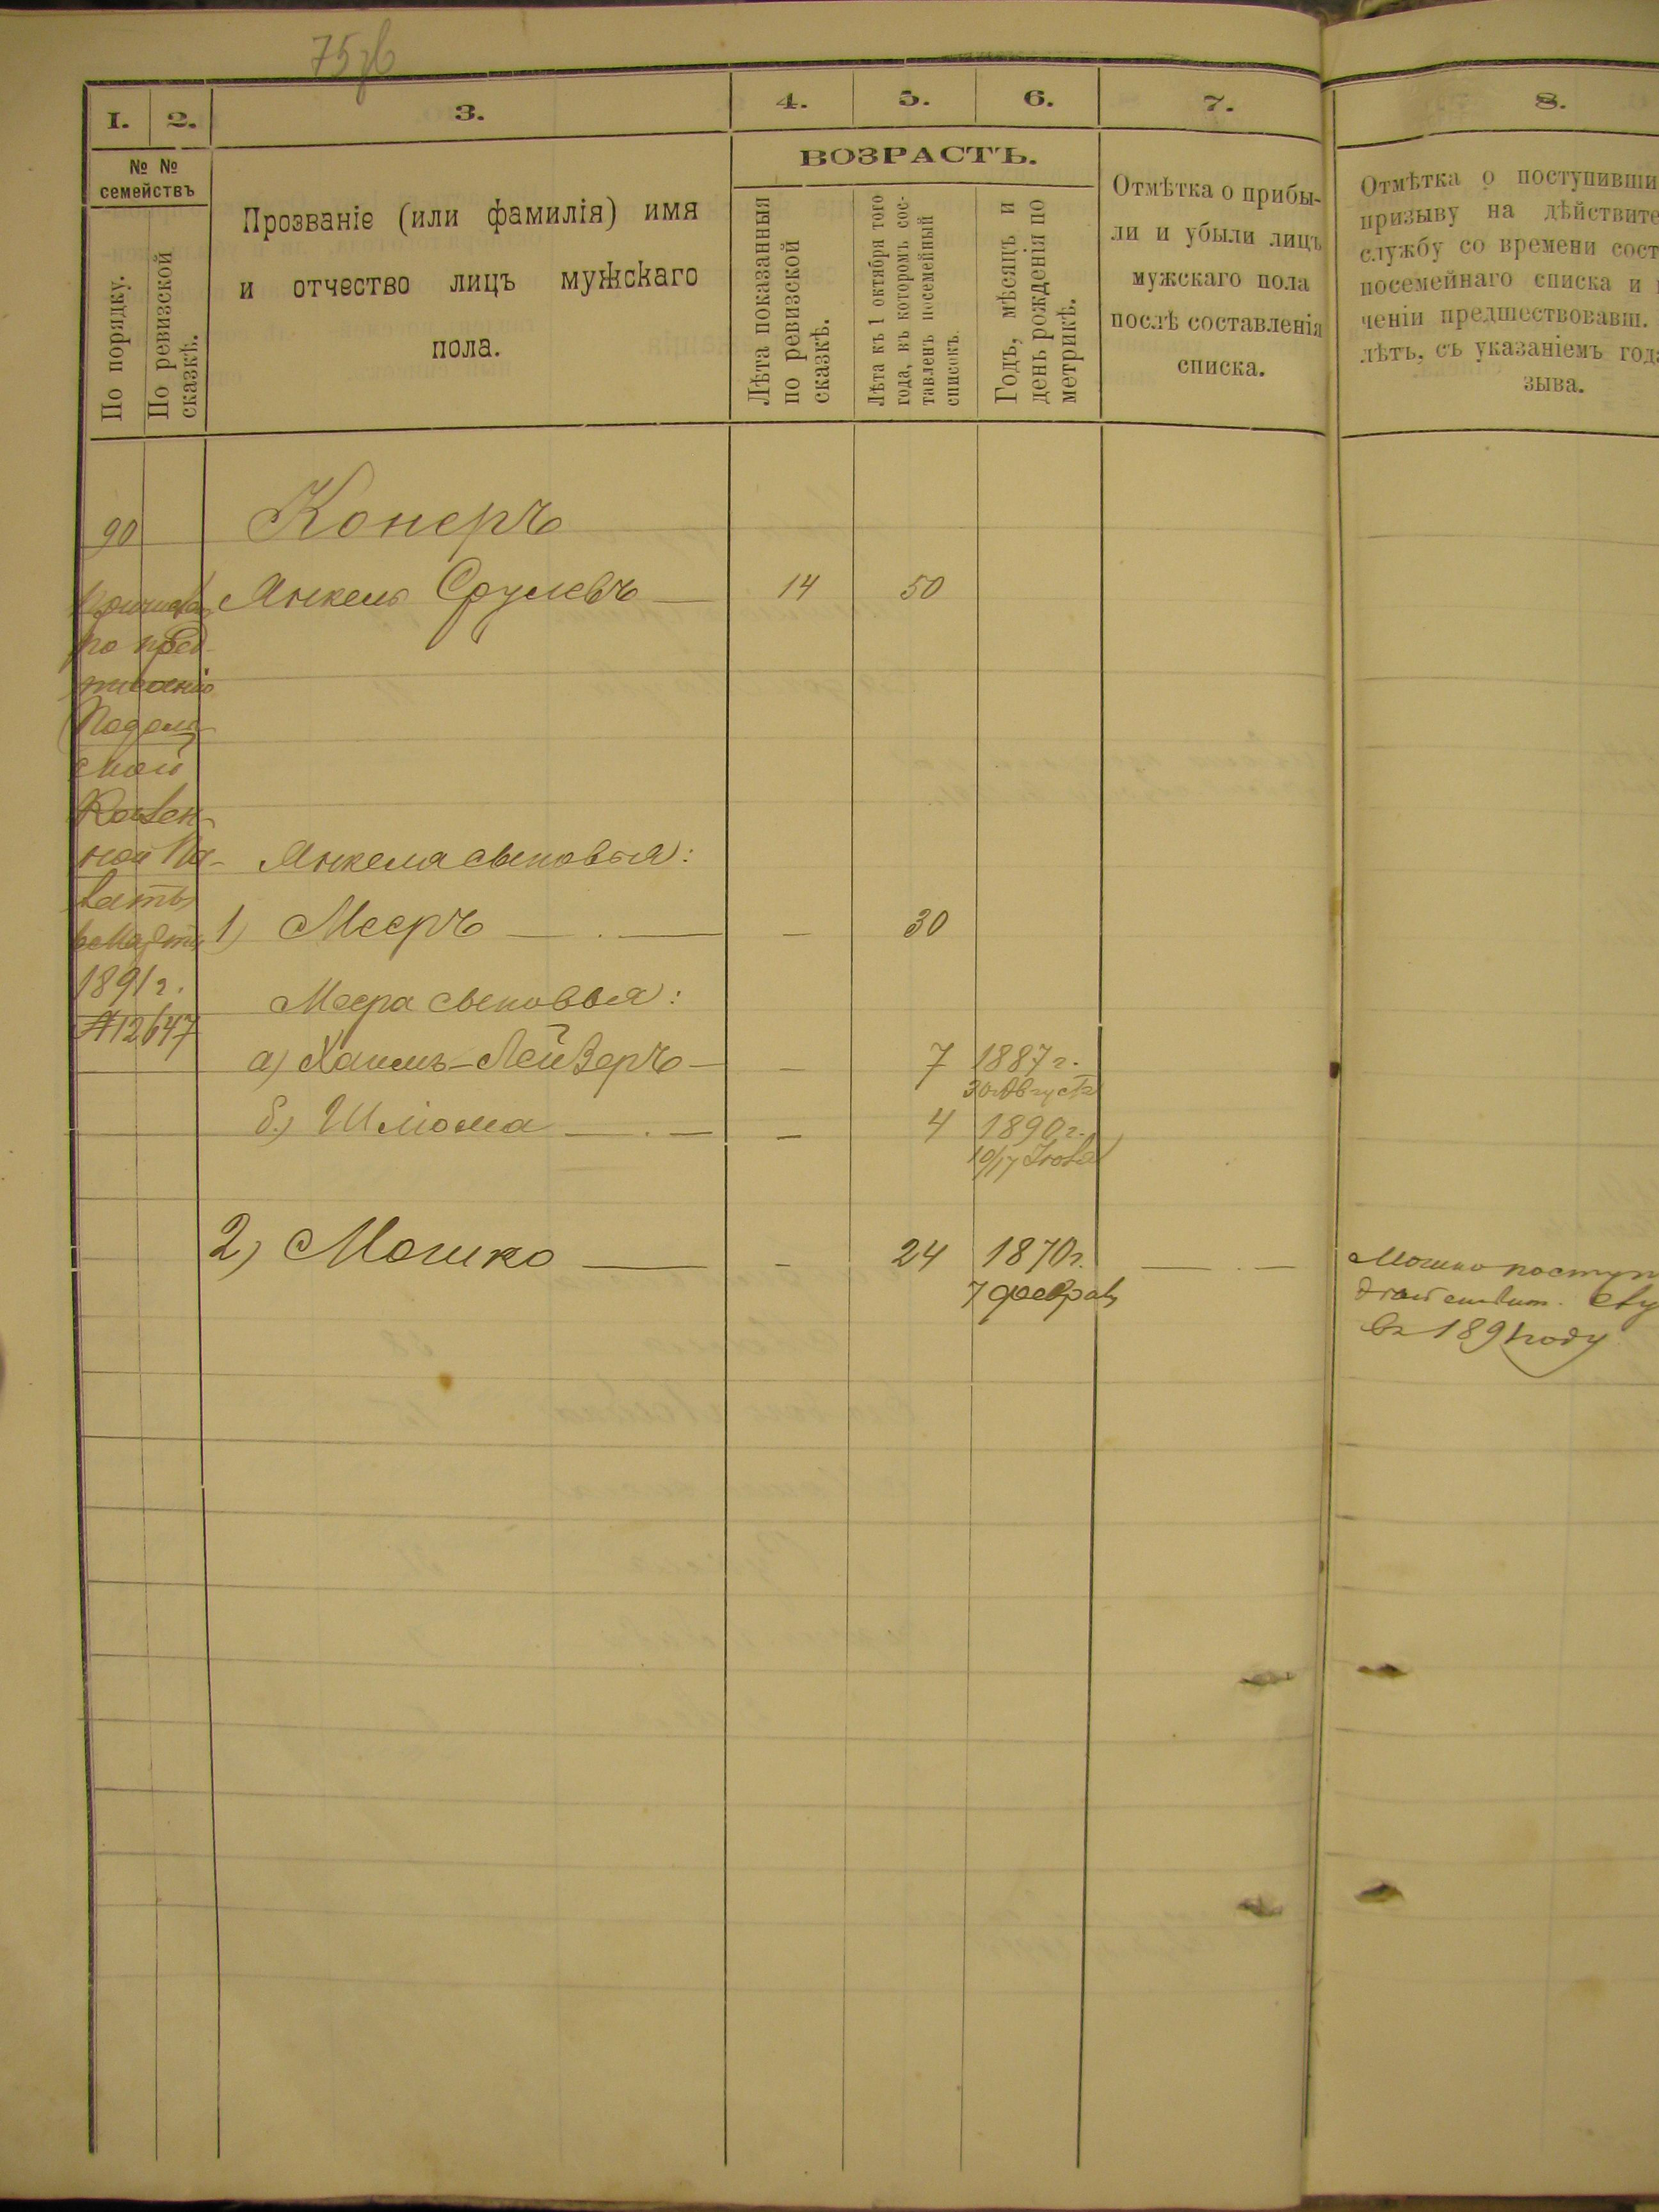 75 об
1. 2. 3. 4. 5. 6. 7. 8.
№ №
семействъ
По порядку.
По ревизской
сказкѣ.
Прозваніе (или фамилія) имя
и отчество лицъ мужскаго
пола.
ВОЗРАСТЪ.
Лѣта показанныя
по ревизской
сказкѣ.
Лѣта къ 1 октября того
года, въ которомъ сос-
тавленъ посемейный
списокъ.
Годъ, мѣсяцъ и
день рожденія по
метрикѣ.
Отмѣтка о прибы-
ли и убыли лицъ
мужскаго пола
послѣ составленія
списка.
Отмѣтка о поступивши
призыву на дѣйствите
службу со времени сост
посемейнаго списка и
ченіи предшествовавш.
лѣтъ, съ указаніемъ год
зыва.
90 Конеръ
Янкель Срулевъ — 14 50
по пред-
писанію
Подоль-
ской
Казен-
ной Па-
латы
въ Мартѣ
1891 г.
№ 12647
Янкеля сыновья:
1) Мееръ — — 30
Меера сыновья:
а) Хаимъ-Лейзеръ — — 7 1887 г.
30 Августа
б) Шлiома — — 4 1890 г.
10/17 Іюля
2) Мошко — - 24 1870 г. —
7 феврал
Мошко поступ
в 1891 году